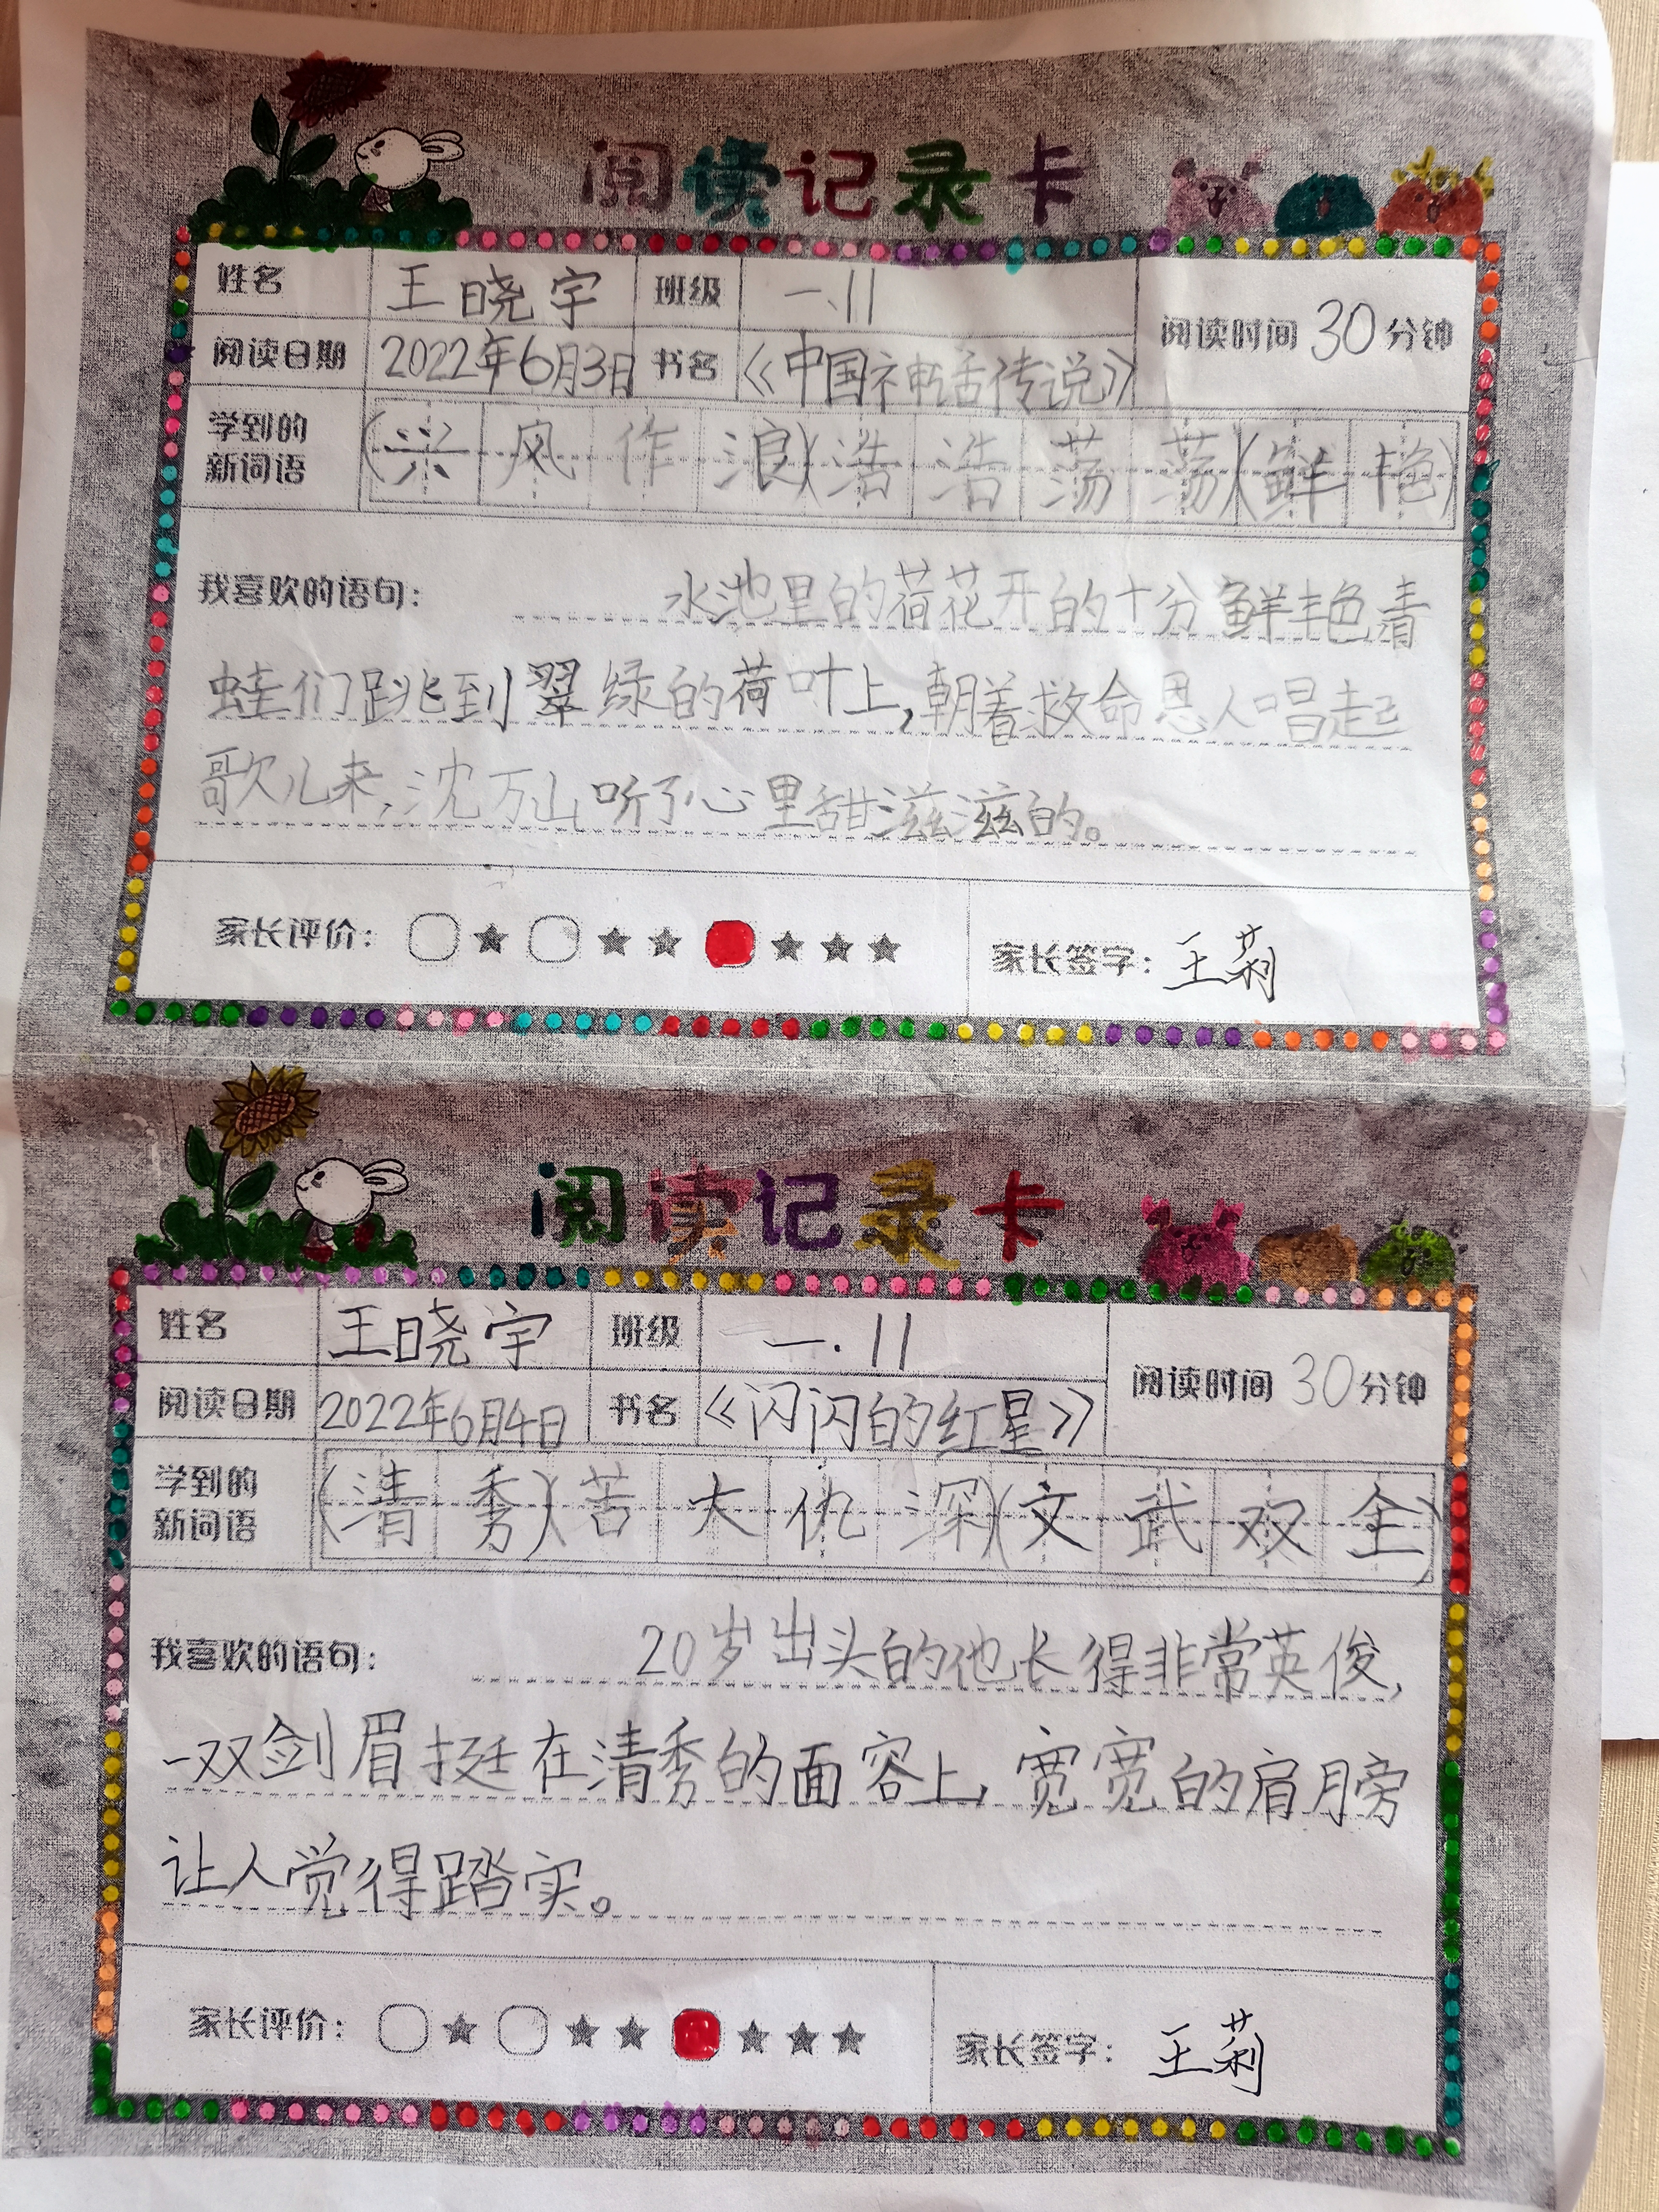 阅读记录卡
姓名 王晓宇 班级 一.11
阅读时间 30 分钟
阅读日期 2022年6月3日 书名 《中国神话传说》
学到的
新词语
(兴风作浪)(浩浩荡荡)(鲜艳)
我喜欢的语句: 水池里的荷花开的十分鲜艳青
蛙们跳到翠绿的荷叶上,朝着救命恩人唱起
歌儿来,沈万山听了心里甜滋滋的。
家长评价: ○★ ○★★ ★★★ 家长签字: 王莉
阅读记录卡
姓名 王晓宇 班级 一.11
阅读时间 30 分钟
阅读日期 2022年6月4日 书名 《闪闪的红星》
学到的
新词语
(清秀)(苦大仇深)(文武双全)
我喜欢的语句: 20岁出头的他长得非常英俊,
一双剑眉挺在清秀的面容上,宽宽的肩膀
让人觉得踏实。
家长评价: ○★ ○★★ ★★★ 家长签字: 王莉